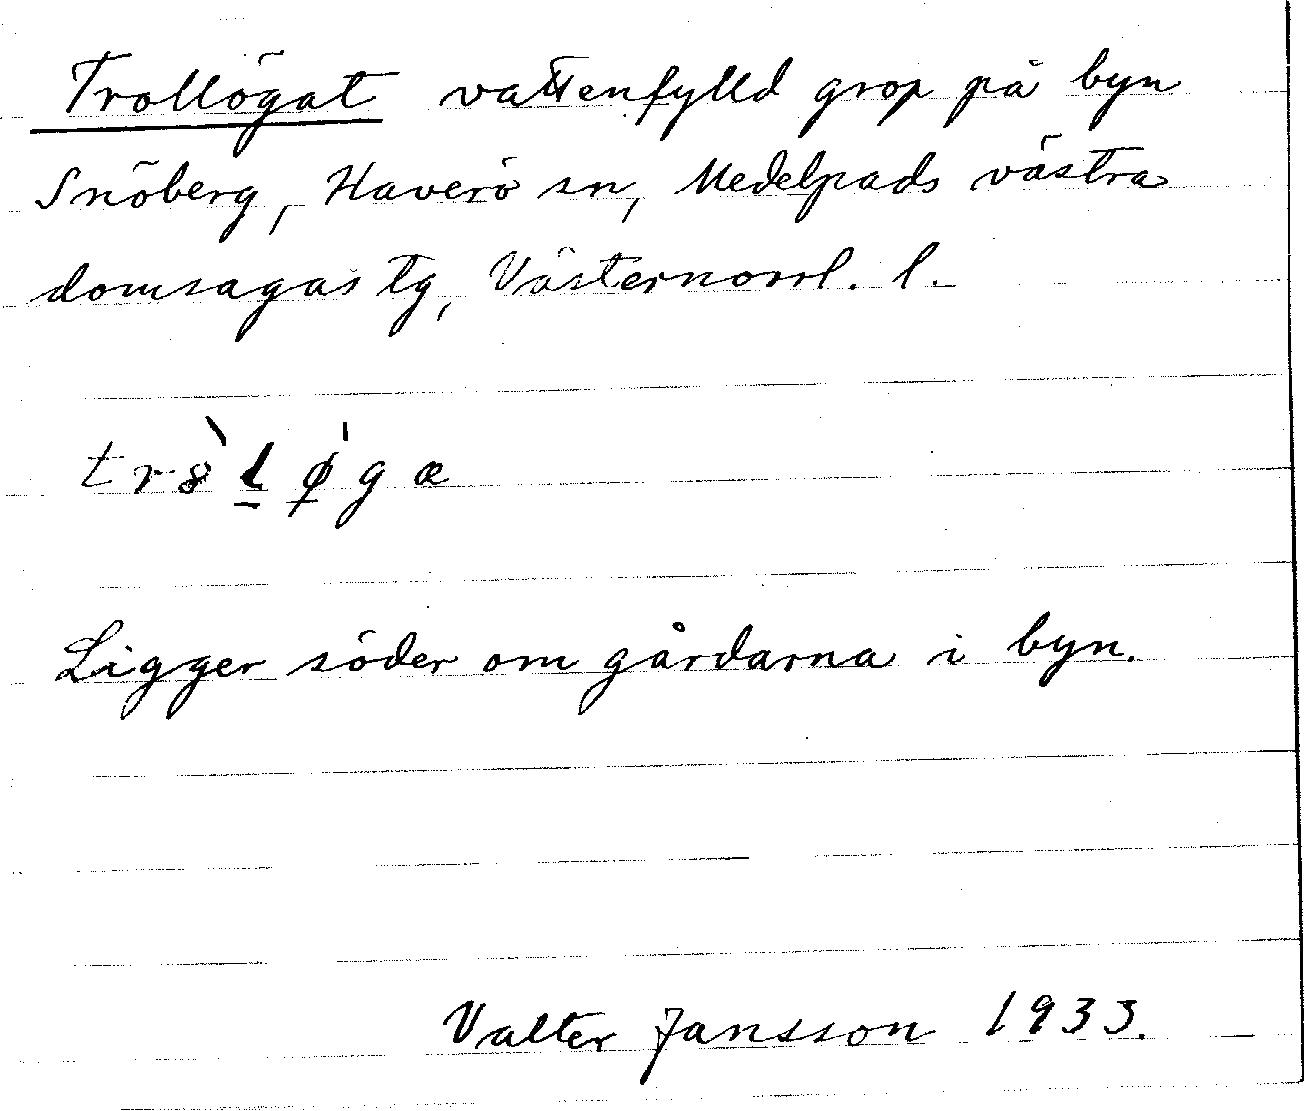 Trollögat vattenfylld grop på byn
Snöberg, Haverö sn, Medelpads västra
domsagas tg, Västernorrl. l.
tr8̀l̲ ǿ̲gæ
Ligger söder om gårdarna i byn.
Valter Jansson 1933.